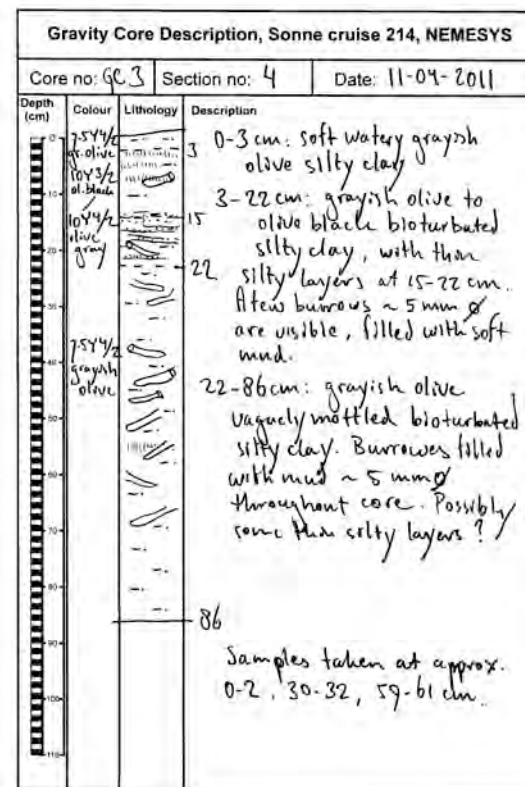 Gravity Core Description, Sonne cruise 214, NEMESYS
Core no: GC3 Section no: 4 Date: 11-04-2011
Depth (cm) Colour Lithology Description
0
10
20
30
40
50
60
70
80
90
100
110
7.5Y4/2
gr. olive
10Y3/2
ol. black
10Y4/2
olive
gray
7.5Y4/2
grayish
olive
3
15
22
86
0-3 cm: soft watery grayish
olive silty clay
3-22 cm: grayish olive to
olive black bioturbated
silty clay, with thin
silty layers at 15-22 cm.
A few burrows ~ 5 mm ø
are visible, filled with soft
mud.
22-86cm: grayish olive
vaguely mottled bioturbated
silty clay. Burrowes filled
with mud ~ 5 mm ø
throughout core. Possibly
some thin silty layers?
Samples taken at approx.
0-2, 30-32, 59-61 cm.